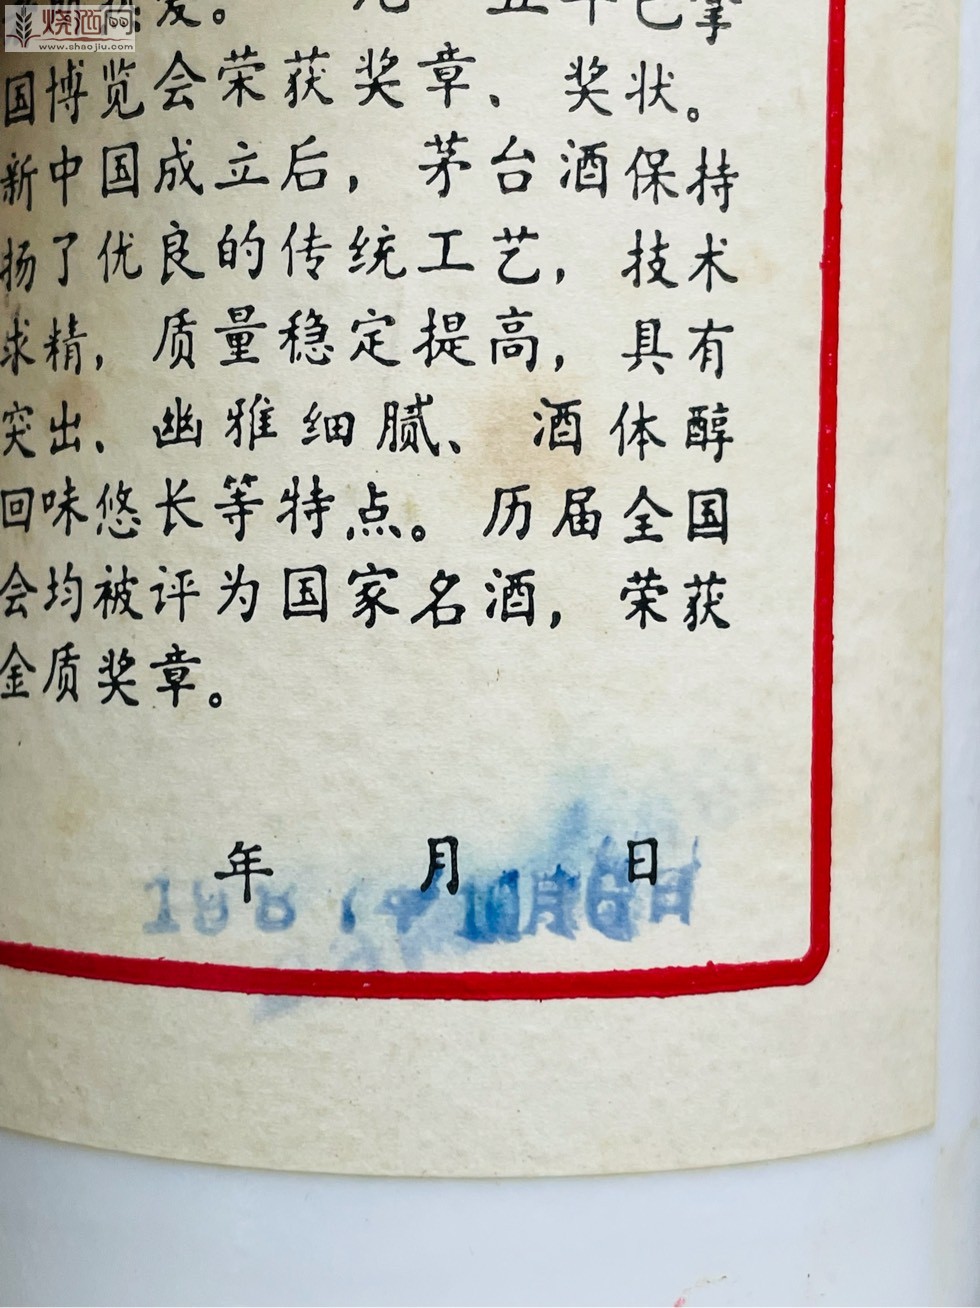 烧酒网
www.shaojiu.com
国博览会荣获奖章、奖状。
新中国成立后，茅台酒保持
扬了优良的传统工艺，技术
求精，质量稳定提高，具有
突出、幽雅细腻、酒体醇
回味悠长等特点。历届全国
会均被评为国家名酒，荣获
金质奖章。
年 月 日